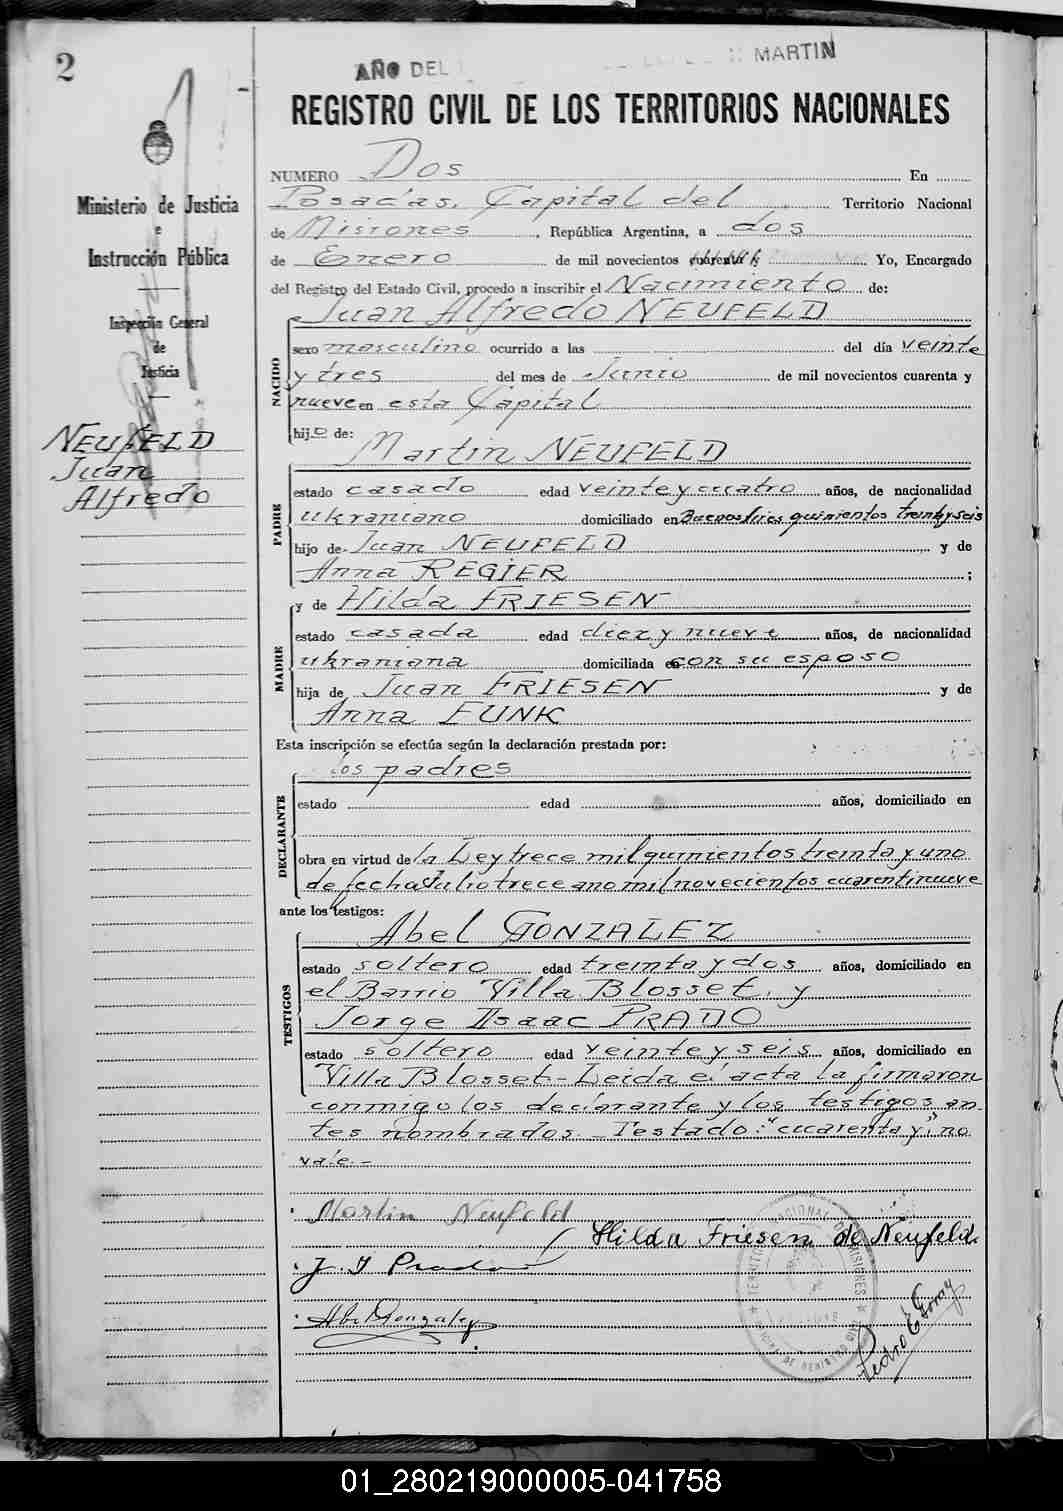 2
AÑO DEL MARTIN
REGISTRO CIVIL DE LOS TERRITORIOS NACIONALES
Ministerio de Justicia
e
Instrucción Pública
Inspección General
de
Justicia
NEUFELD
Juan
Alfredo
NUMERO Dos En
Posadas, Capital del Territorio Nacional
de Misiones, República Argentina, a dos
de Enero de mil novecientos cuarenta y Yo, Encargado
del Registro del Estado Civil, procedo a inscribir el Nacimiento de:
NACIDO
Juan Alfredo NEUFELD
sexo masculino ocurrido a las del día veinte
y tres del mes de Junio de mil novecientos cuarenta y
nueve en esta Capital
hijo de:
PADRE
Martin NEUFELD
estado casado edad veinte y cuatro años, de nacionalidad
ukraniano domiciliado en Buenos Aires quinientos treinta y seis
hijo de Juan NEUFELD y de
Anna REGIER ;
MADRE
y de Hilda FRIESEN
estado casada edad diez y nueve años, de nacionalidad
ukraniana domiciliada en con su esposo
hija de Juan FRIESEN y de
Anna FUNK
Esta inscripción se efectúa según la declaración prestada por:
DECLARANTE
los padres
estado edad años, domiciliado en
obra en virtud de la Ley trece mil quinientos treinta y uno
de fecha Julio trece ano mil novecientos cuarentinueve
ante los testigos:
TESTIGOS
Abel GONZALEZ
estado soltero edad treinta y dos años, domiciliado en
el Barrio Villa Blosset, y
Jorge Isaac PRADO
estado soltero edad veinte y seis años, domiciliado en
Villa Blosset - Leida el acta la firmaron
conmigo los declarante y los testigos an
tes nombrados. - Testado: "cuarenta y", no
vale. -
Martin Neufeld
Hilda Friesen de Neufeld.
J. I Prado
Abel Gonzalez
Pedro E
01_280219000005-041758